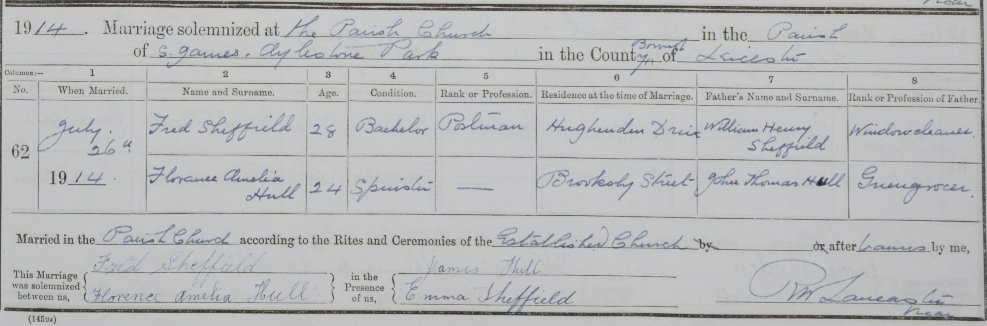 Vicar
1914. Marriage solemnized at the Parish Church in the Parish
of S. James, Aylestone Park in the County Borough of Leicester
Columns:— 1 2 3 4 5 6 7 8
No. When Married. Name and Surname. Age. Condition. Rank or Profession. Residence at the time of Marriage. Father's Name and Surname. Rank or Profession of Father.
62 July 26th 1914. Fred Sheffield 28 Bachelor Postman Hughenden Drive William Henry Sheffield Windowcleaner.
Florance Amelia Hull 24 Spinster — Brooksby Street John Thomas Hull Greengrocer.
Married in the Parish Church according to the Rites and Ceremonies of the Established Church by or after banns by me,
This Marriage was solemnized between us, Fred Sheffield Florence Amelia Hull in the Presence of us, James Hull Emma Sheffield
Lancaster
Vicar
(145ve)